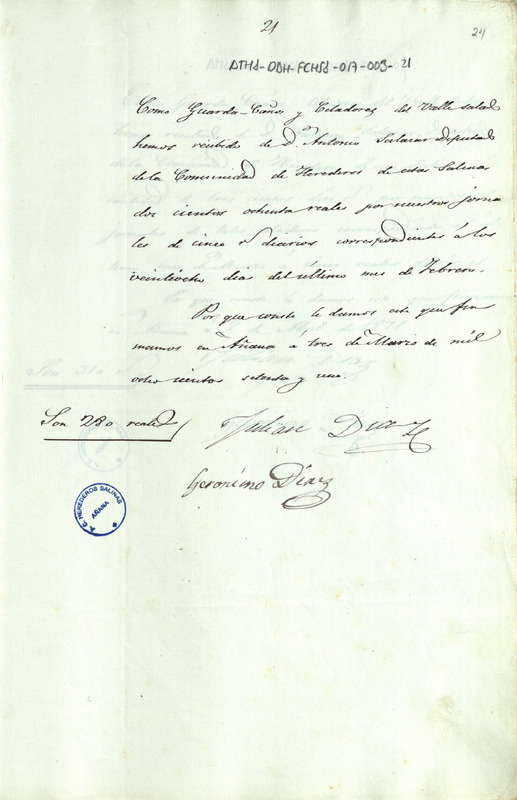 21
24
ATHS-DDH-FCHSA-017-003-21
Como Guarda-Caños y Celadores del Valle salado
hemos recibido de D. Antonio Salazar Diputado
de la Comunidad de Herederos de estas Salinas
dos cientos ochenta reales por nuestros jorna
les de cinco rs diarios correspondientes á los
veintiocho dias del último mes de Febrero.
Por que conste le damos este que fir
mamos en Añana á tres de Marzo de mil
ocho cientos setenta y uno.
Son 280 reales
Julian Diaz
Geronimo Diaz
HEREDEROS SALINAS
AÑANA